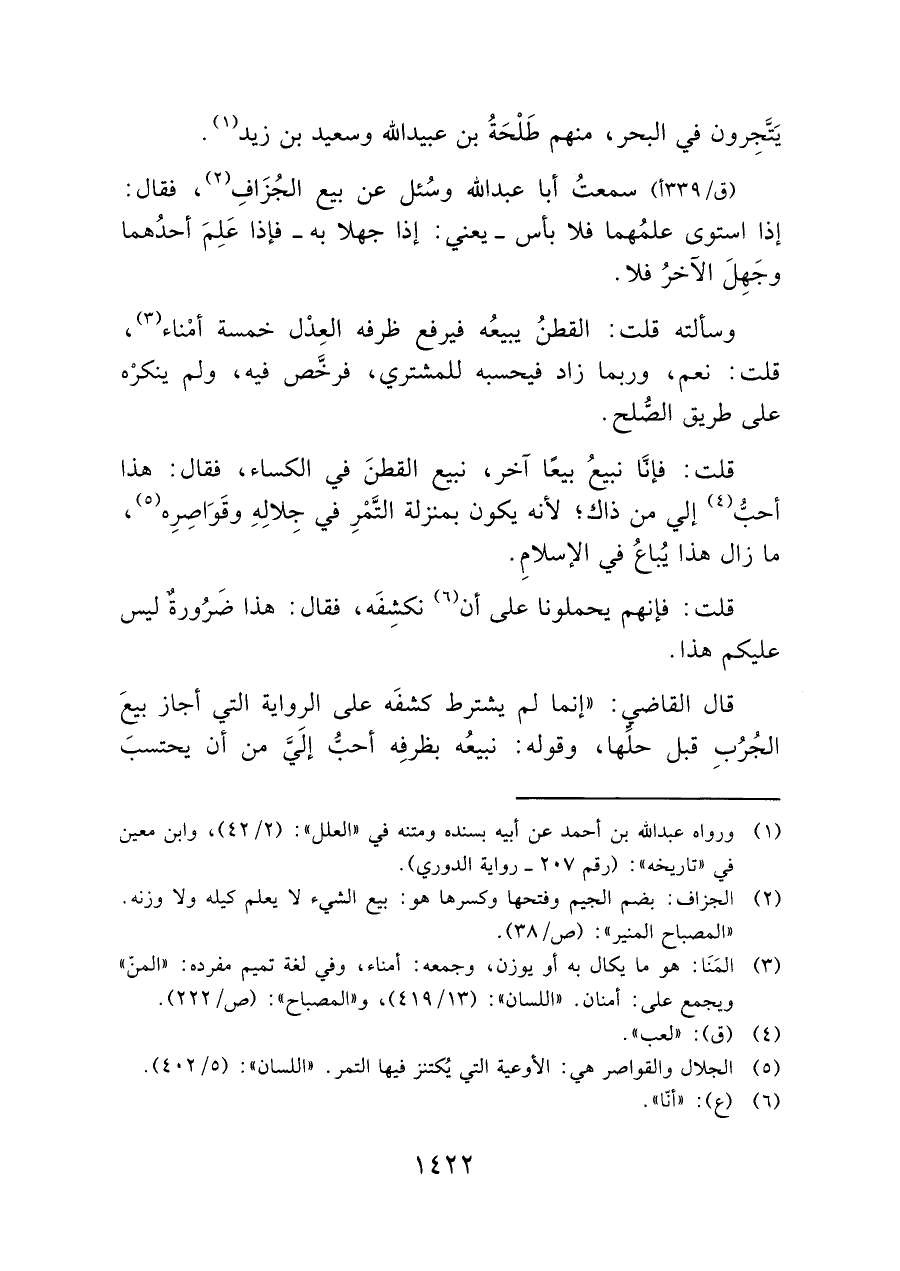 يَتَّجِرون في البحر، منهم طَلْحَةُ بن عبيدالله وسعيد بن زيد(١).
(ق/٣٣٩أ) سمعتُ أبا عبدالله وسُئل عن بيع الجُزَافِ(٢)، فقال:
إذا استوى علمُهما فلا بأس ـ يعني: إذا جهلا به ـ فإذا عَلِمَ أحدُهما
وجَهِلَ الآخرُ فلا.
وسألته قلت: القطنُ يبيعُه فيرفع ظرفه العِدْل خمسة أمْناء(٣)،
قلت: نعم، وربما زاد فيحسبه للمشتري، فرخَّص فيه، ولم ينكرْه
على طريق الصُّلح.
قلت: فإنَّا نبيعُ بيعًا آخر، نبيع القطنَ في الكساء، فقال: هذا
أحبُّ(٤) إلي من ذاك؛ لأنه يكون بمنزلة التَّمْرِ في جِلالِهِ وقَوَاصِرِه(٥)،
ما زال هذا يُباعُ في الإسلامِ.
قلت: فإنهم يحملونا على أن(٦) نكشِفَه، فقال: هذا ضَرُورةٌ ليس
عليكم هذا.
قال القاضي: «إنما لم يشترط كشفَه على الرواية التي أجاز بيعَ
الجُرُبِ قبل حلِّها، وقوله: نبيعُه بظرفِه أحبُّ إلَيَّ من أن يحتسبَ
(١) ورواه عبدالله بن أحمد عن أبيه بسنده ومتنه في «العلل»: (٢/ ٤٢)، وابن معين
في «تاريخه»: (رقم ٢٠٧ ـ رواية الدوري).
(٢) الجزاف: بضم الجيم وفتحها وكسرها هو: بيع الشيء لا يعلم كيله ولا وزنه.
«المصباح المنير»: (ص/ ٣٨).
(٣) المَنَا: هو ما يكال به أو يوزن، وجمعه: أمناء، وفي لغة تميم مفرده: «المنّ»
ويجمع على: أمنان. «اللسان»: (١٣/ ٤١٩)، و«المصباح»: (ص/ ٢٢٢).
(٤) (ق): «لعب».
(٥) الجلال والقواصر هي: الأوعية التي يُكتنز فيها التمر. «اللسان»: (٥/ ٤٠٢).
(٦) (ع): «أنّا».
١٤٢٢